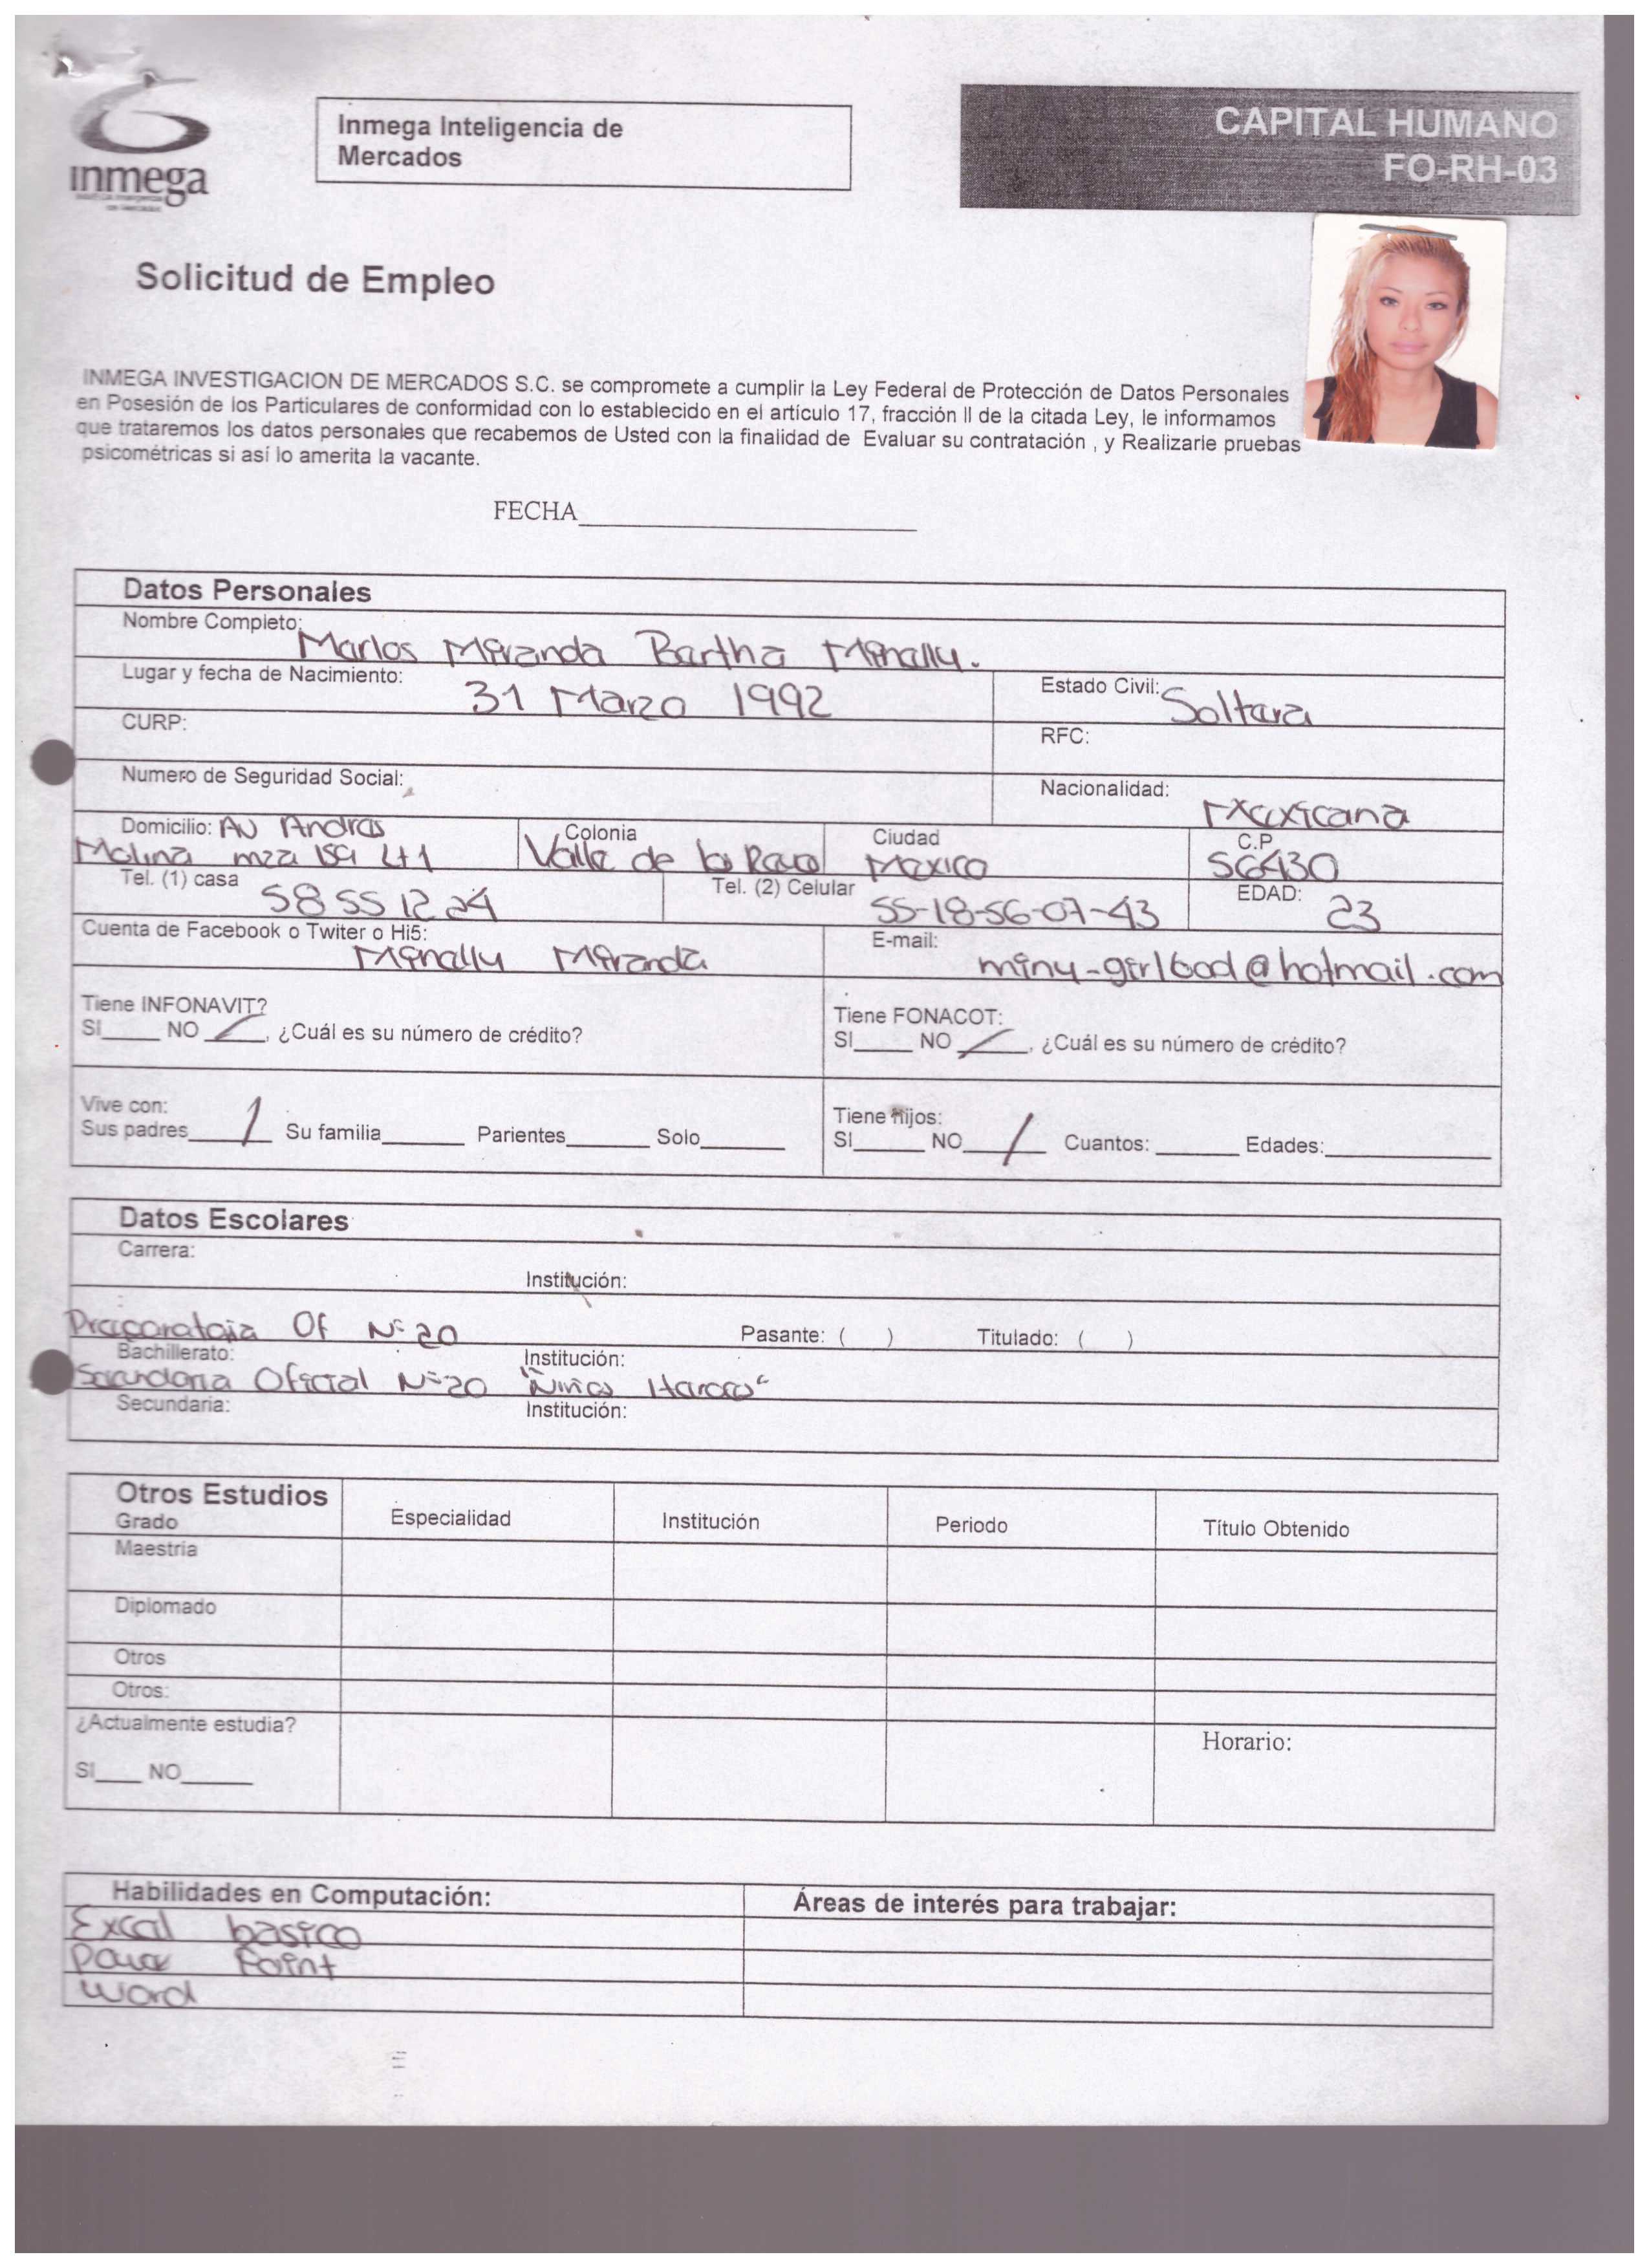 inmega
Inmega Inteligencia de
Mercados
CAPITAL HUMANO
FO-RH-03
Solicitud de Empleo
INMEGA INVESTIGACION DE MERCADOS S.C. se compromete a cumplir la Ley Federal de Protección de Datos Personales
en Posesión de los Particulares de conformidad con lo establecido en el artículo 17, fracción II de la citada Ley, le informamos
que trataremos los datos personales que recabemos de Usted con la finalidad de Evaluar su contratación , y Realizarle pruebas
psicométricas si así lo amerita la vacante.
FECHA
Datos Personales
Nombre Completo:
Marlos Miranda Bertha Minally.
Lugar y fecha de Nacimiento: 31 Marzo 1992 Estado Civil: Soltera
CURP: RFC:
Numero de Seguridad Social: Nacionalidad: Mexicana
Domicilio: Av Andres Colonia Ciudad C.P
Molina mza 159 Lt1 Valle de los Mexico 56430
Tel. (1) casa 58 55 12 24 Tel. (2) Celular 55-18-56-07-43 EDAD: 23
Cuenta de Facebook o Twiter o Hi5: Minally Miranda E-mail: miny-girlbad@hotmail.com
Tiene INFONAVIT? Tiene FONACOT:
SI____ NO ____, ¿Cuál es su número de crédito? SI____ NO ____, ¿Cuál es su número de crédito?
Vive con: Tiene hijos:
Sus padres____ Su familia____ Parientes____ Solo____ SI____ NO____ Cuantos: ____ Edades:____
Datos Escolares
Carrera:
Institución:
Preparatoria Of Nº 20 Pasante: ( ) Titulado: ( )
Bachillerato: Institución:
Secundaria Oficial Nº 20 "Niños Heroes"
Secundaria: Institución:
Otros Estudios
Grado Especialidad Institución Periodo Título Obtenido
Maestria
Diplomado
Otros
Otros:
¿Actualmente estudia? Horario:
SI____ NO____
Habilidades en Computación: Áreas de interés para trabajar:
Excel basico
Power Point
Word